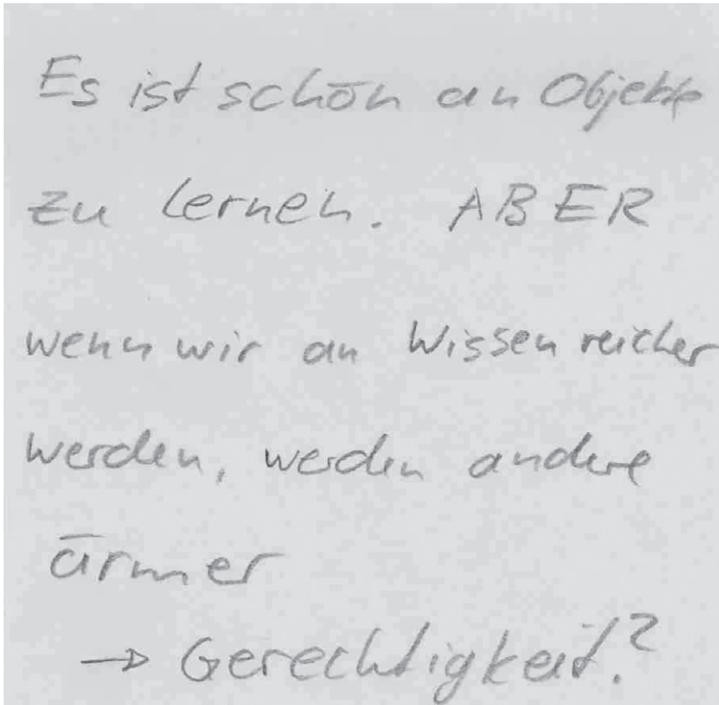 Es ist schön an Objekte
zu lernen. ABER
wenn wir an Wissen reicher
werden, werden andere
ärmer
→ Gerechtigkeit?